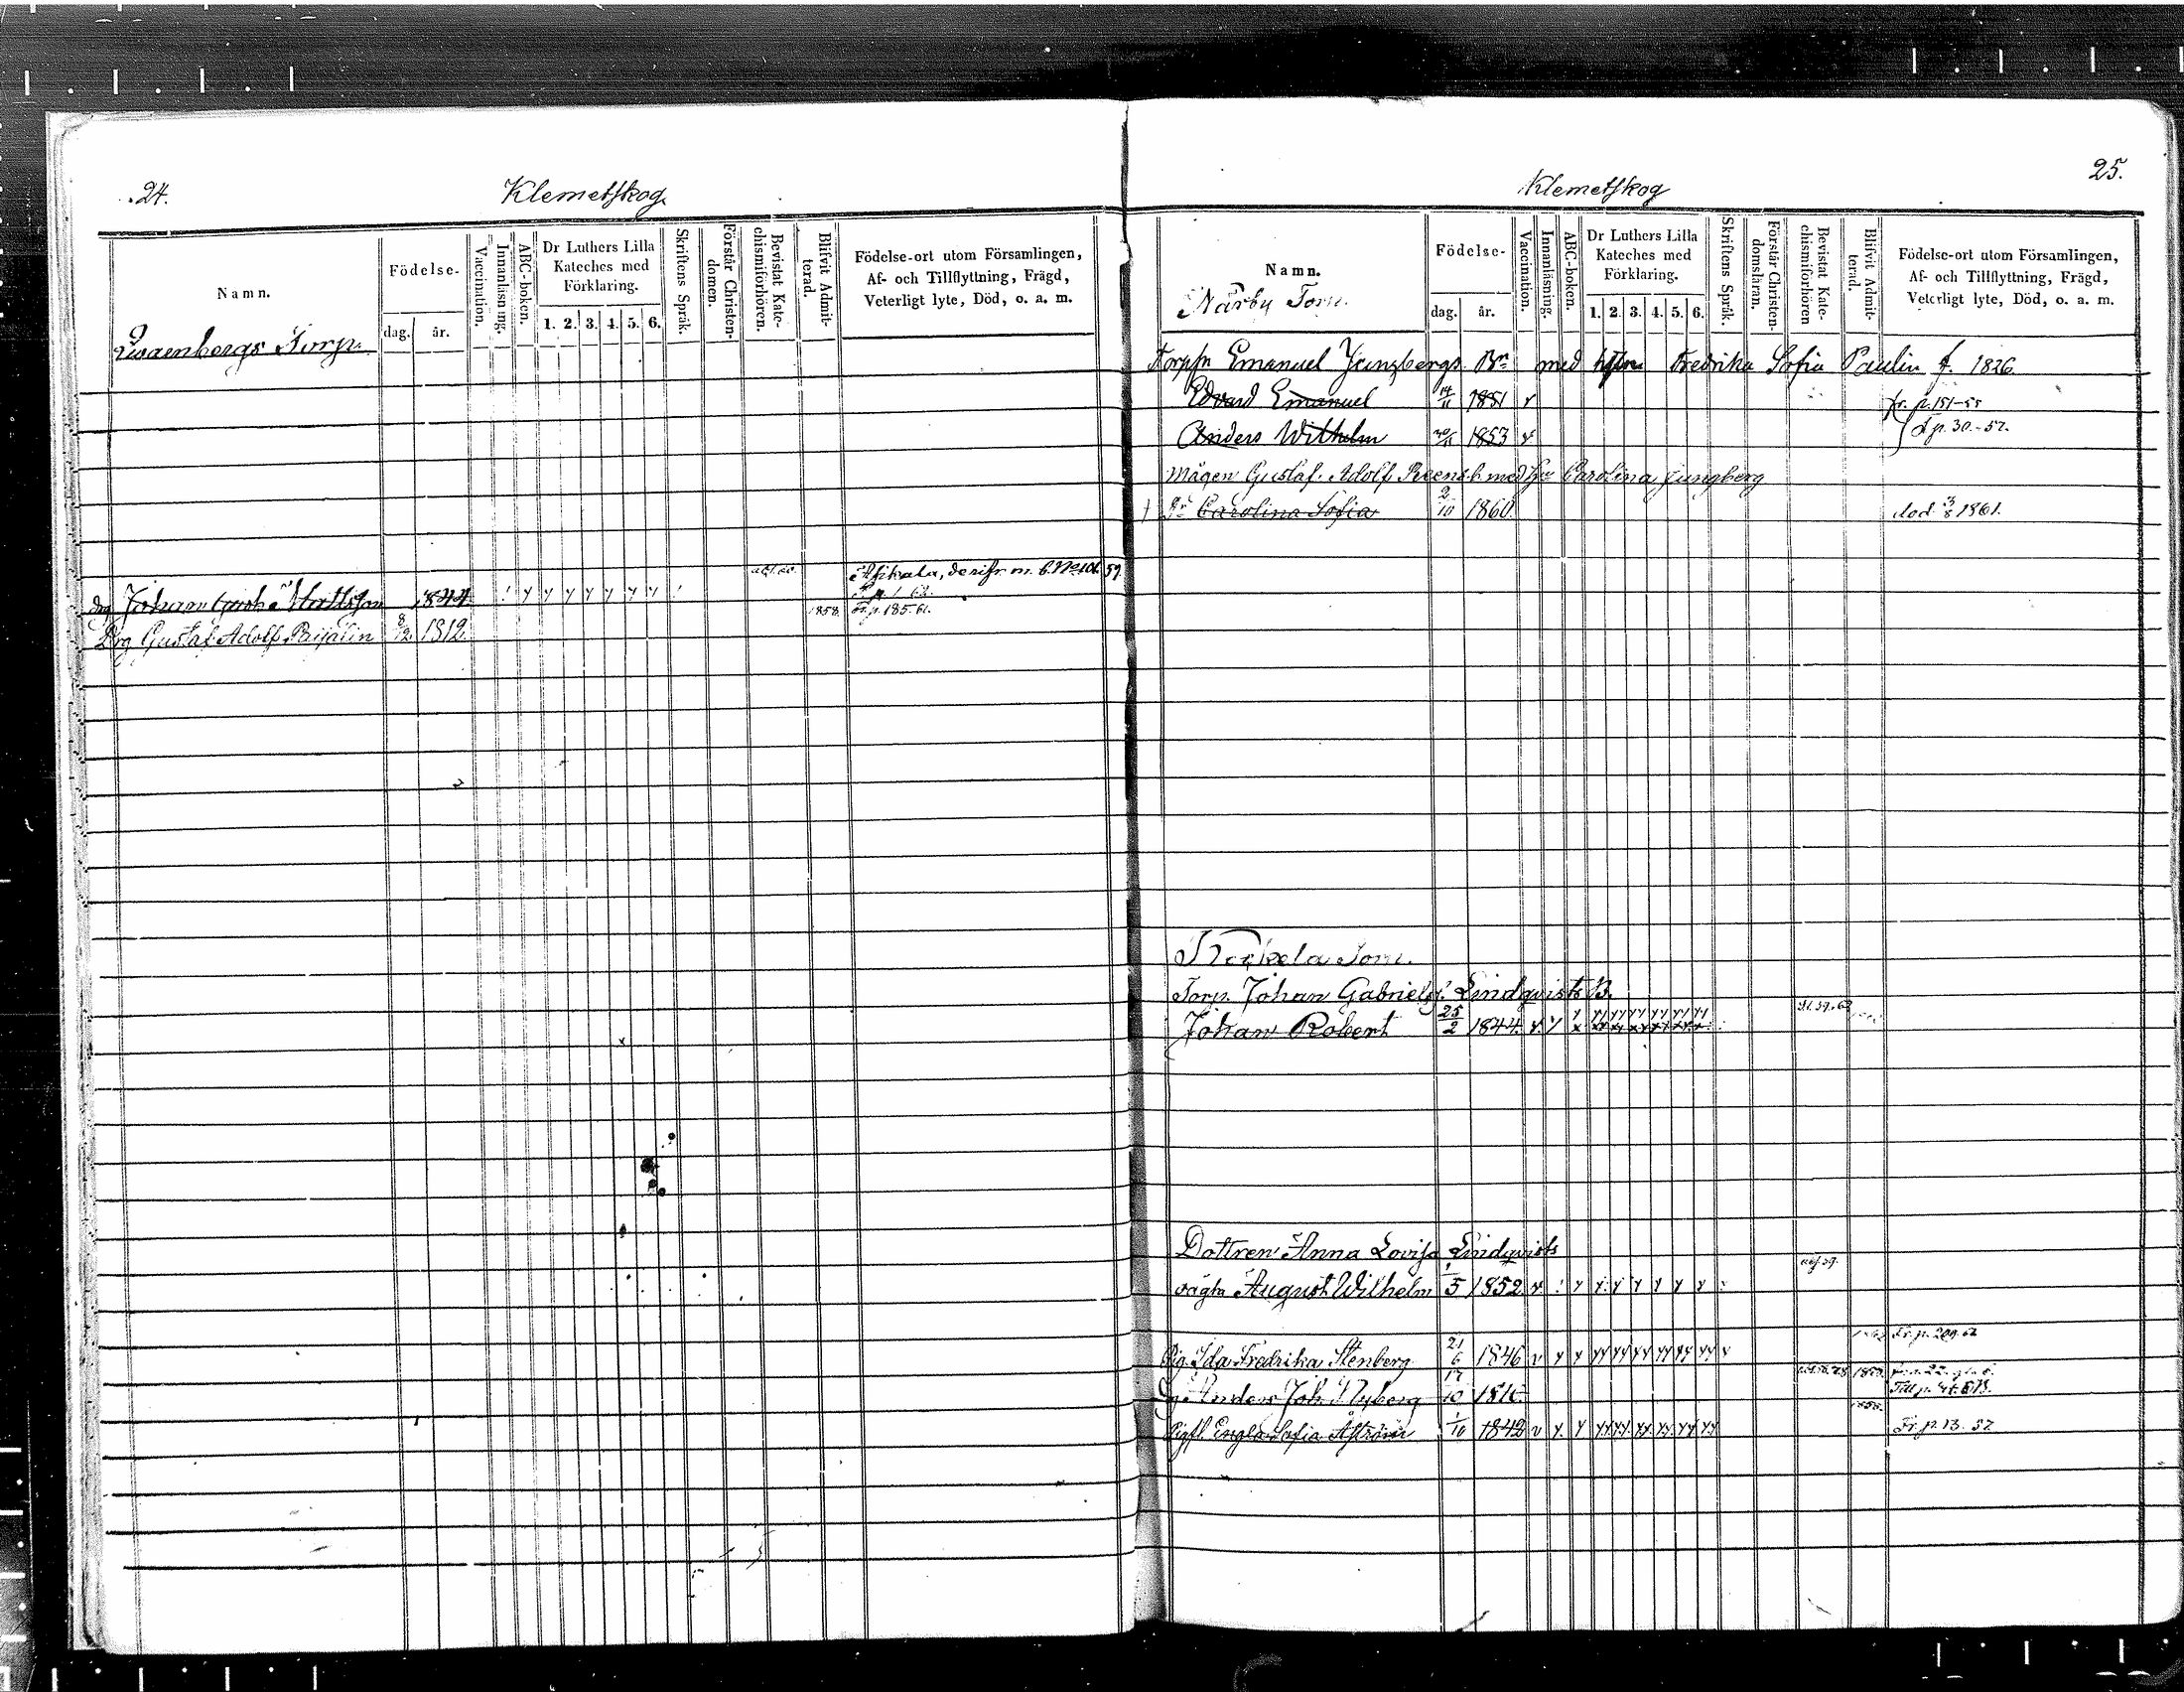 24.
Klemetskog
Namn.
Födelse-
dag. år.
Vaccination.
Innanläsning.
ABC-boken.
Dr Luthers Lilla
Kateches med
Förklaring.
1. 2. 3. 4. 5. 6.
Skriftens Språk.
Förstår Christen-
domen.
Bevistat Kate-
chismiförhören.
Blifvit Admit-
terad.
Födelse-ort utom Församlingen,
Af- och Tillflyttning, Frägd,
Veterligt lyte, Död, o. a. m.
Torp.
Asikala, derifr. m. b. No 101. 59.
drg Johan 1844
1858. Fr. p. 185. 61.
Drg Gustaf Adolf 8/12 1812
25.
Klemetskog
Namn.
Närby Torp.
Födelse-
dag. år.
Vaccination.
Innanläsning.
ABC-boken.
Dr Luthers Lilla
Kateches med
Förklaring.
1. 2. 3. 4. 5. 6.
Skriftens Språk.
Förstår Christen-
domsläran.
Bevistat Kate-
chismiförhören
Blifvit Admit-
terad.
Födelse-ort utom Församlingen,
Af- och Tillflyttning, Frägd,
Veterligt lyte, Död, o. a. m.
Emanuel Jungbergs Bn med Fredrika Sofia Paulin f. 1826
Edvard Emanuel 14/11 1851 fr. p. 151-55
Anders Wilhelm 30/11 1853 t p. 30.-57.
Mågen Gustaf Adolf med Carolina Jungberg
† Dr Carolina Sofia 2/10 1860 död 3/8 1861.
Torp.
Torp. Johan Gabrielss. Lindqvists B.
Johan Robert 25/2 1844
Dottren Anna Lovisa Lindqvists
oägta August Wilhelm 1/5 1852
Pig. Ida Fredrika Stenberg 21/6 1846 Fr. p. 209. 62
Anders Joh. Nyberg 17/10 1816
Sofia Åström 1/10 1842 Fr. p. 13. 57